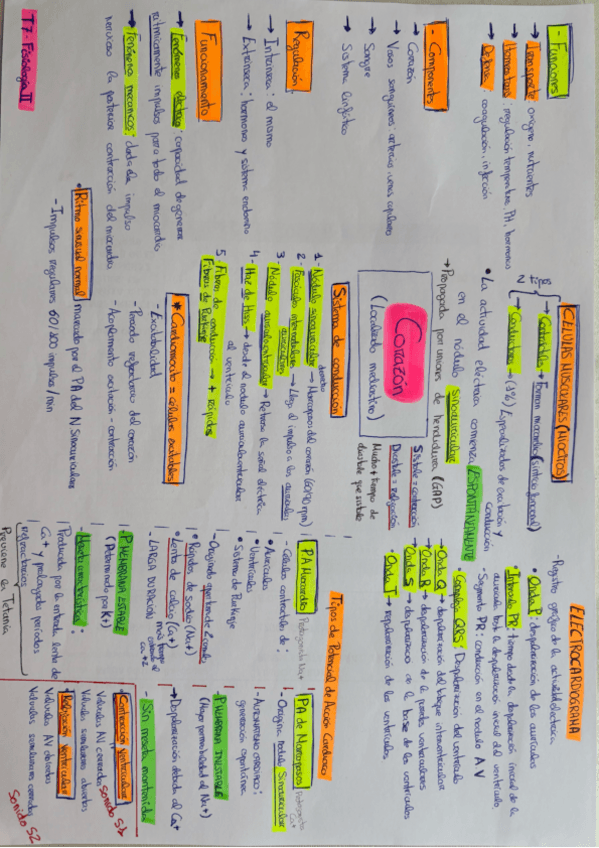 T7: Fisiología II
- Funciones
→ Transporte oxígeno, nutrientes
→ Homeostasis: regulación temperatura, PH, hormonas
→ Defensa: coagulación, infección
- Componentes
→ Corazón
→ Vasos sanguíneos: arterias, venas, capilares
→ Sangre
→ Sistema linfático
Regulación
→ Intrínseca: él mismo
→ Extrínseca: hormonas y sistema endocrino
Funcionamiento
→ Fenómenos eléctricos: capacidad de generar
ritmicamente impulsos para todo el miocardio
→ Fenómenos mecánicos: dada el impulso
nervioso la posterior contracción del miocardio
CÉLULAS MUSCULARES (MIOCITOS)
2
→ Contráctiles → Forman miocardio (sincitio funcional)
→ Conductoras → (1%) Especializadas de excitación y
conducción
• La actividad eléctrica comienza ESPONTÁNEAMENTE
en el nódulo sinoauricular
→ Propagada por uniones de hendidura (GAP)
Corazón
(Localizado mediastino)
Sístole = contracción
Diástole = relajación
Mucho + tiempo de
diástole que sístole
Sistema de conducción
derecho
1- Nódulo sinoauricular → Marcapaso del corazón (60/70 rpm)
2- Fascículos internodulares → Llega el impulso a las aurículas
auriculares
3 Nódulo auriculoventricular → Retrasa la señal eléctrica
4- Haz de Hiss → desde el nódulo auriculoventricular
al ventrículo
5 Fibras de conducción → + rápidas
Fibras de Purkinje
* Cardiomiocito = células excitables
- Excitabilidad
- Periodo refractario del corazón
- Acoplamiento excitación - contracción
• Ritmo sinusal normal marcado por el PA del N Sinoauricular
- Impulsos regulares 60/100 impulsos/min
ELECTROCARDIOGRAMA
- Registro gráfico de la actividad eléctrica
• Onda P: despolarización de las aurículas
• Intervalo PR: tiempo desde la despolarización inicial de la
aurícula hasta la despolarización inicial del ventrículo
- Segmento PR: conducción en el nódulo AV
• Complejo QRS: Despolarización del ventrículo
→ Onda Q → despolarización del tabique intraventricular
→ Onda R → despolarización de la pared ventriculares
→ Onda S → despolarización en la base de los ventrículos
• Onda T → repolarización de los ventrículos
Tipos de Potencial de Acción Cardiaco
PA Miocardico Protagonista Na+
- Células contráctiles de:
• Aurículas
• Ventrículos
• Sistema de Purkinje
- Originado apertura de 2 canales
• Rápidos de sodio (Na+)
• Lento de calcio (Ca+)
- LARGA DURACIÓN
- P MEMBRANA ESTABLE
(Determinado por K+)
- Meseta característica:
Producida por la entrada lenta de
Ca+ y prolongado periodos
refractarios
Previene la Tetania
PA de Marcapasos Protagonista Ca+
- Origina nódulo Sinoauricular
- AUTOMATISMO CARDIACO:
generación espontánea
- P MEMBRANA INESTABLE
(Mayor permeabilidad al Na+)
→ Despolarización debida al Ca+
- Sin meseta mantenida
• Contracción ventricular
Válvulas AV cerradas Sonido S1
Válvulas semilunares abiertas
• Relajación ventricular
Válvulas AV abiertas
Válvulas semilunares cerradas
Sonido S2